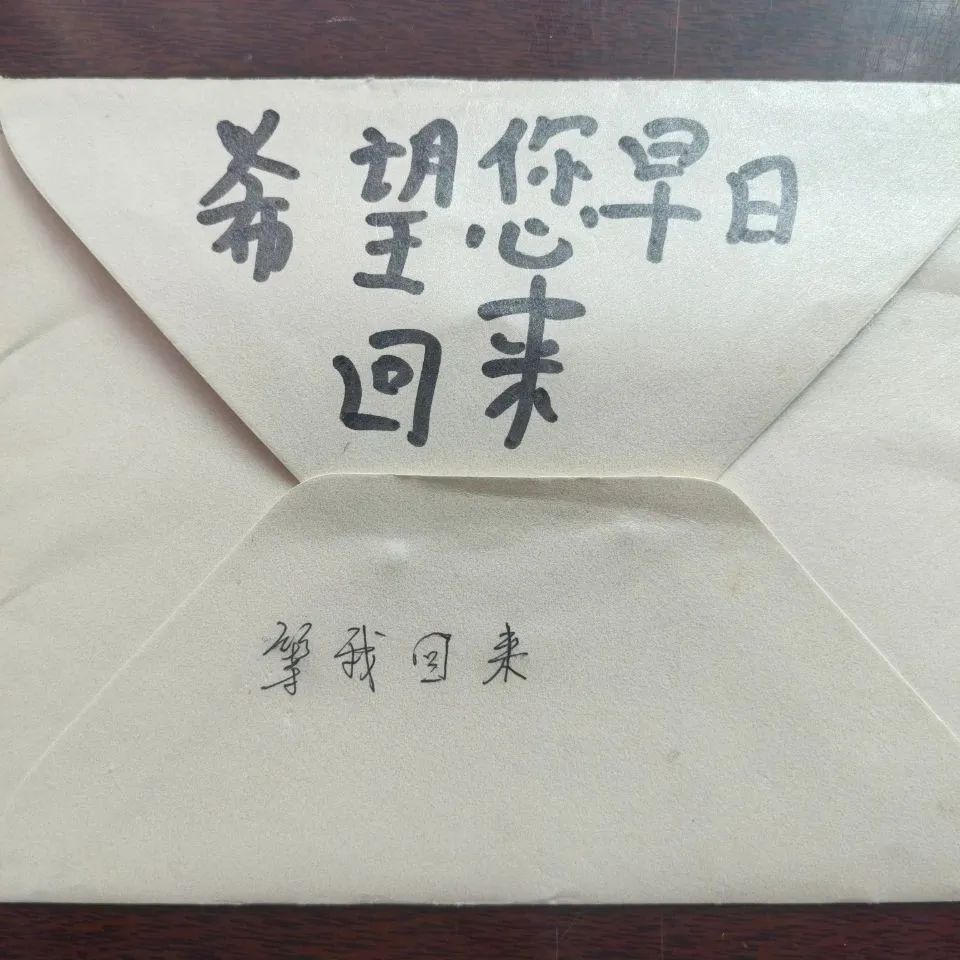 希望您早日
回来
等我回来